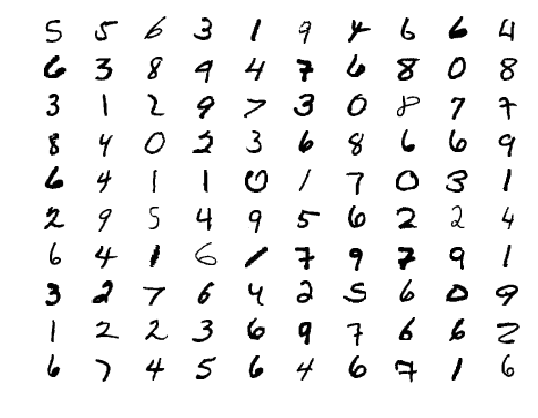 5 5 6 3 1 9 4 6 6 4
6 3 8 9 4 7 6 8 0 8
3 1 2 9 7 3 0 8 7 7
8 4 0 2 3 6 8 6 6 9
6 4 1 1 0 1 7 0 3 1
2 9 5 4 9 5 6 2 2 4
6 4 1 6 1 7 9 7 9 1
3 2 7 6 4 2 5 6 0 9
1 2 2 3 6 9 7 6 6 2
6 7 4 5 6 4 6 7 1 6